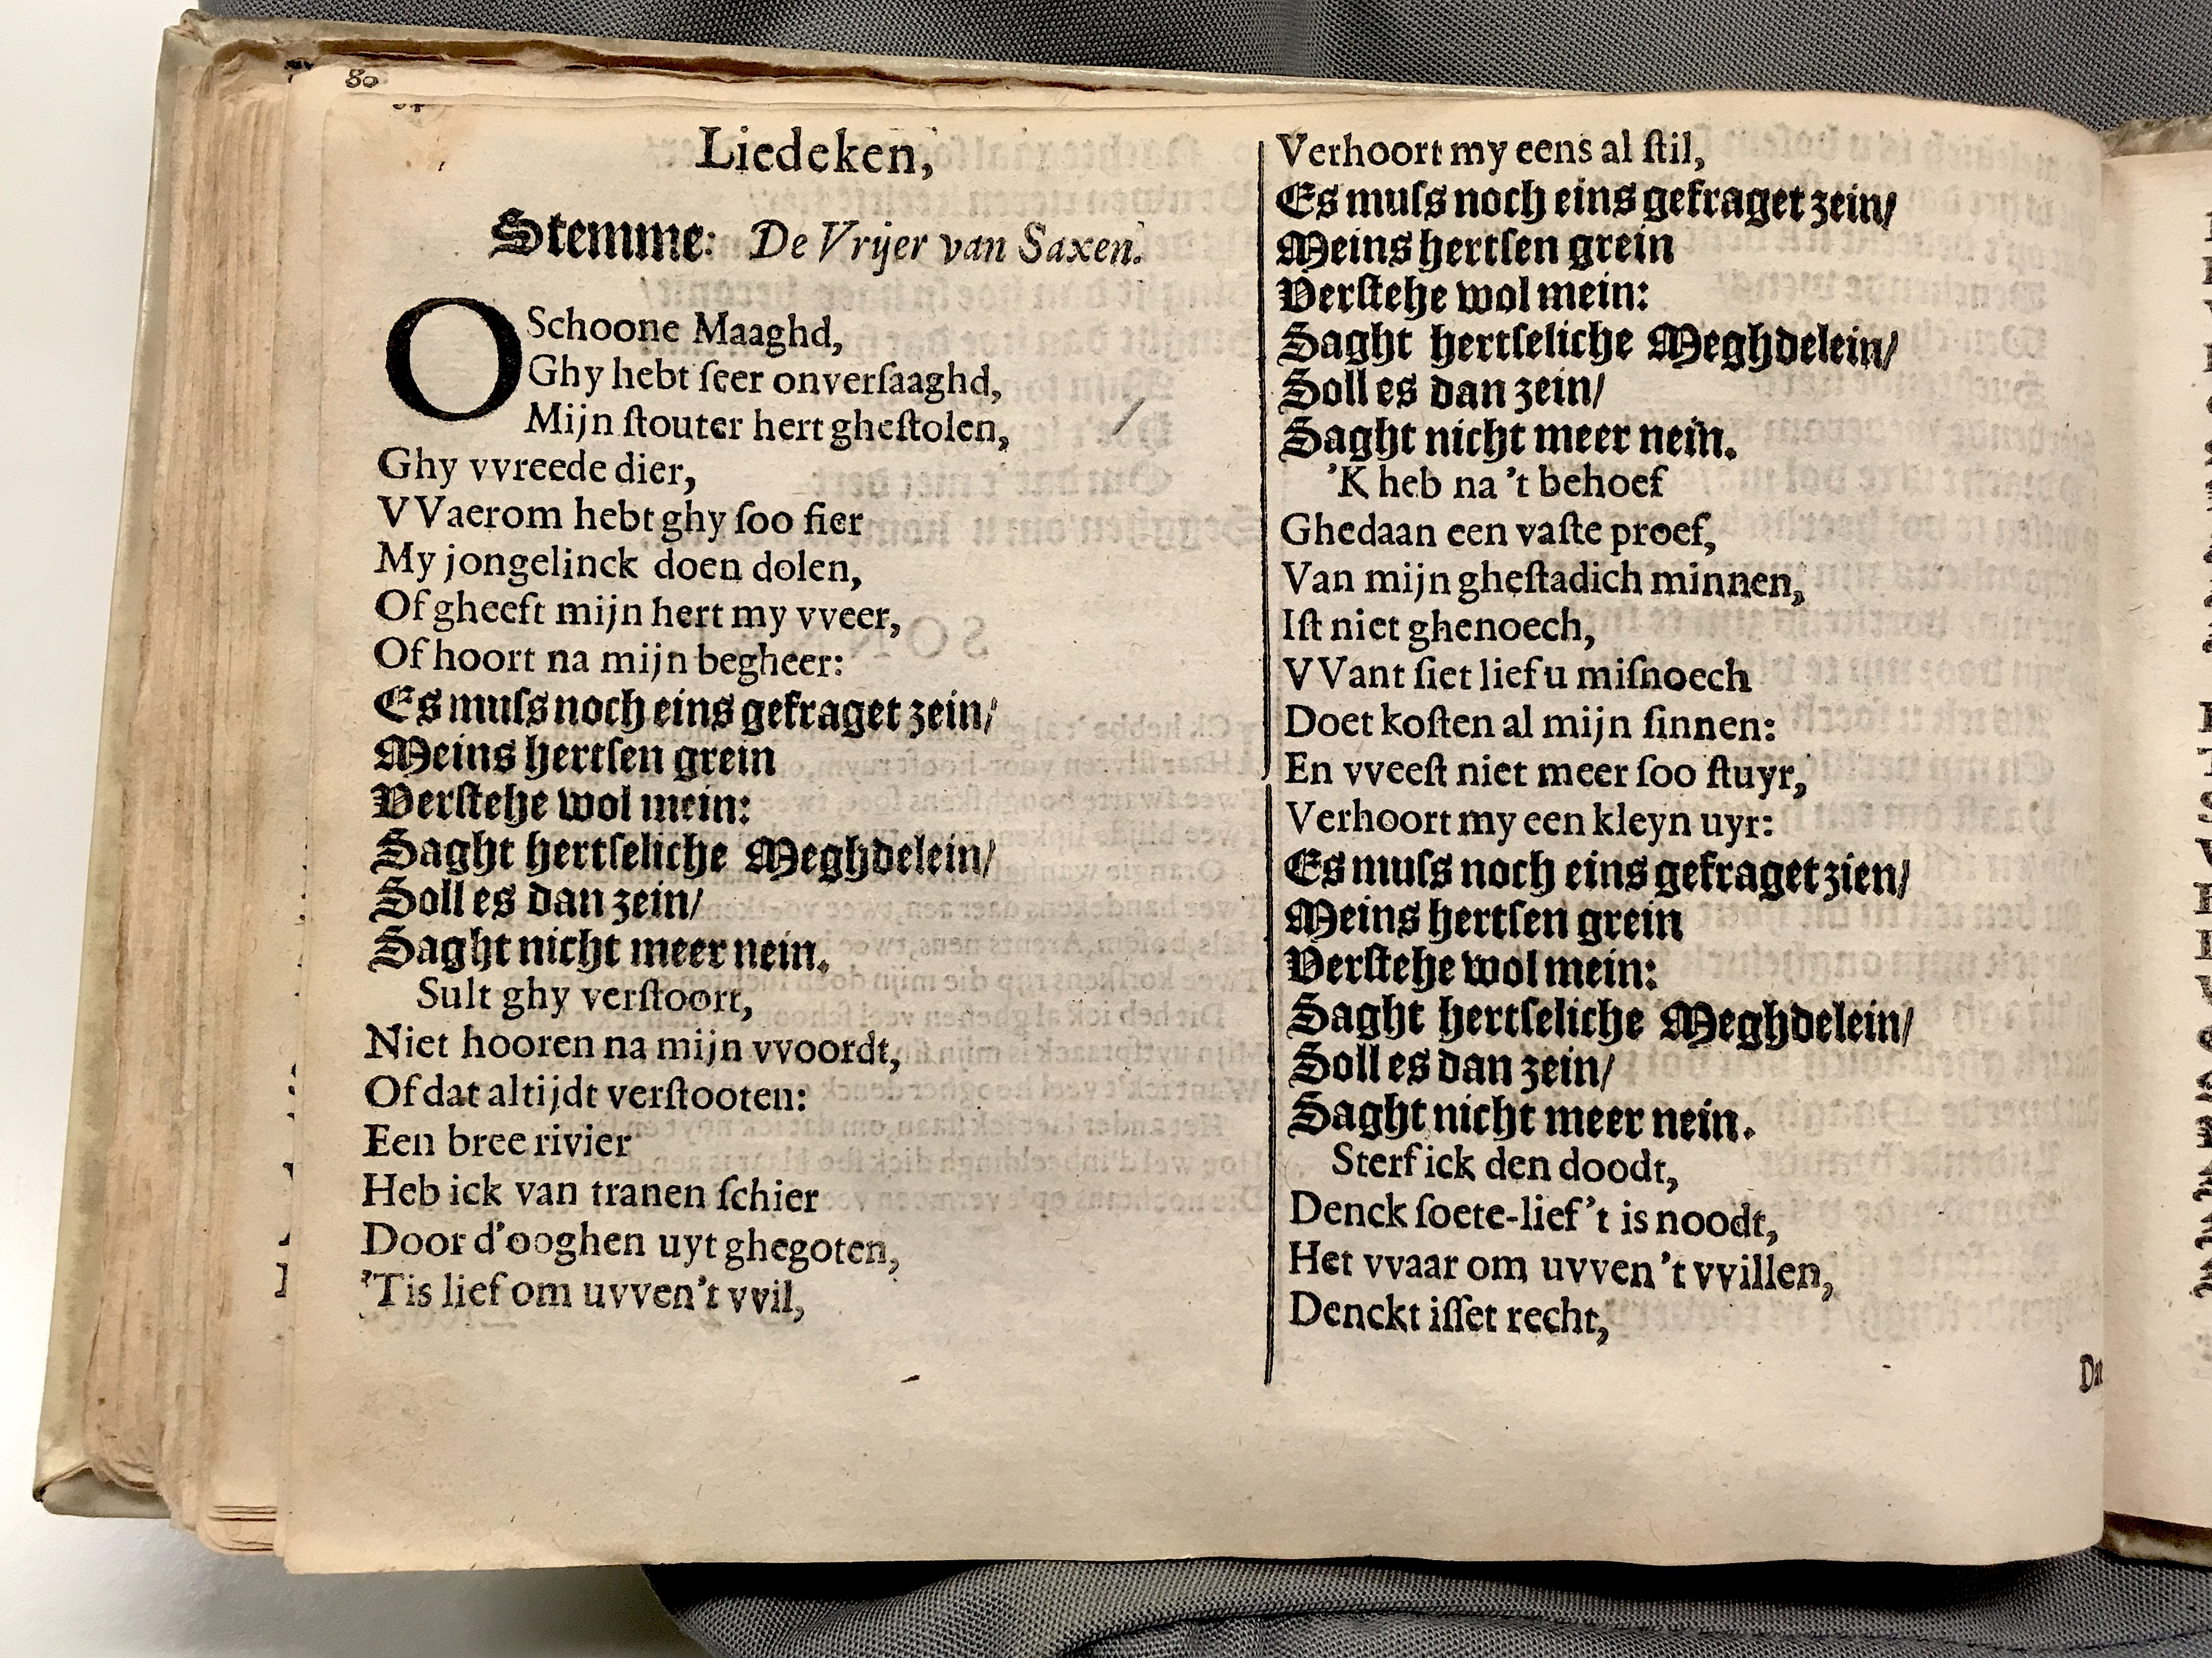 80
Liedeken,
Stemme: De Vrijer van Saxen.
O Schoone Maaghd,
Ghy hebt ſeer onverſaaghd,
Mijn ſtouter hert gheſtolen,
Ghy vvreede dier,
VVaerom hebt ghy ſoo fier
My jongelinck doen dolen,
Of gheeft mijn hert my vveer,
Of hoort na mijn begheer:
Es muſs noch eins gefraget zein/
Meins hertſen grein
Verſtehe wol mein:
Saght hertſeliche Meghdelein/
Soll es dan zein/
Saght nicht meer nein.
Sult ghy verſtoort,
Niet hooren na mijn vvoordt,
Of dat altijdt verſtooten:
Een bree rivier
Heb ick van tranen ſchier
Door d'ooghen uyt ghegoten,
'Tis lief om uvven't vvil,
Verhoort my eens al ſtil,
Es muſs noch eins gefraget zein/
Meins hertſen grein
Verſtehe wol mein:
Saght hertſeliche Meghdelein/
Soll es dan zein/
Saght nicht meer nein.
'K heb na 't behoef
Ghedaan een vaſte proef,
Van mijn gheſtadich minnen,
Iſt niet ghenoech,
VVant ſiet lief u miſnoech
Doet koſten al mijn ſinnen:
En vveeſt niet meer ſoo ſtuyr,
Verhoort my een kleyn uyr:
Es muſs noch eins gefraget zien/
Meins hertſen grein
Verſtehe wol mein:
Saght hertſeliche Meghdelein/
Soll es dan zein/
Saght nicht meer nein.
Sterf ick den doodt,
Denck ſoete-lief 't is noodt,
Het vvaar om uvven 't vvillen,
Denckt iſſet recht,